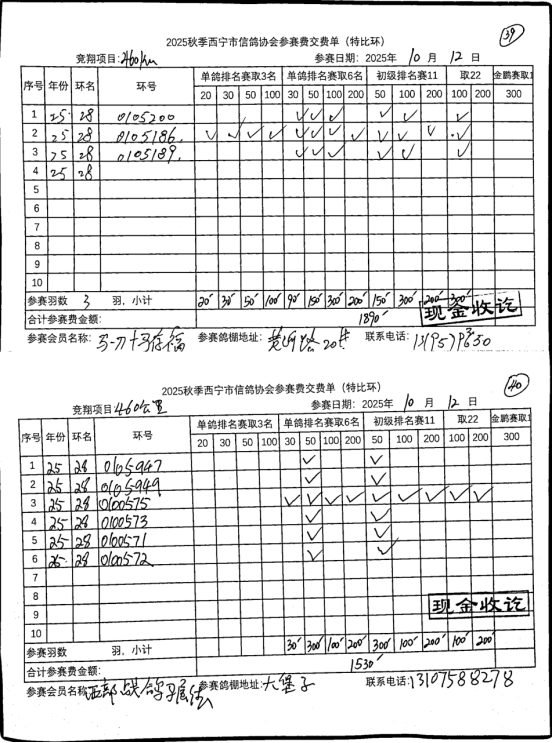 39
2025秋季西宁市信鸽协会参赛费交费单（特比环）
竞翔项目:460km 参赛日期：2025年 10 月 12 日
序号 年份 环名 环号 单鸽排名赛取3名 单鸽排名赛取6名 初级排名赛11 取22 金鹏赛取1
20 30 50 100 30 50 100 200 50 100 200 100 200 300
1 25 28 0105200 ✓ ✓ ✓ ✓ ✓ ✓
2 25 28 0105186 ✓ ✓ ✓ ✓ ✓ ✓ ✓ ✓ ✓ ✓ ✓ ✓
3 25 28 0105189 ✓ ✓ ✓ ✓ ✓ ✓
4 25 28
5
6
7
8
9
10
参赛羽数 3 羽，小计 20 30 50 100 90 150 300 200 150 300 200 300
现金收讫
合计参赛费金额： 1890
参赛会员名称： 参赛鸽棚地址： 联系电话：
40
2025秋季西宁市信鸽协会参赛费交费单（特比环）
竞翔项目:460公里 参赛日期：2025年 10 月 12 日
序号 年份 环名 环号 单鸽排名赛取3名 单鸽排名赛取6名 初级排名赛11 取22 金鹏赛取1
20 30 50 100 30 50 100 200 50 100 200 100 200 300
1 25 28 0105947 ✓ ✓
2 25 28 0105949 ✓ ✓
3 25 28 0100575 ✓ ✓ ✓ ✓ ✓ ✓ ✓ ✓ ✓
4 25 28 0100573 ✓ ✓
5 25 28 0100571 ✓ ✓
6 25 28 0100572 ✓ ✓
7
8
9
10
现金收讫
参赛羽数 羽，小计 30 300 100 200 300 100 200 100 200
合计参赛费金额： 1530
参赛会员名称 参赛鸽棚地址：大堡子 联系电话:13107588278